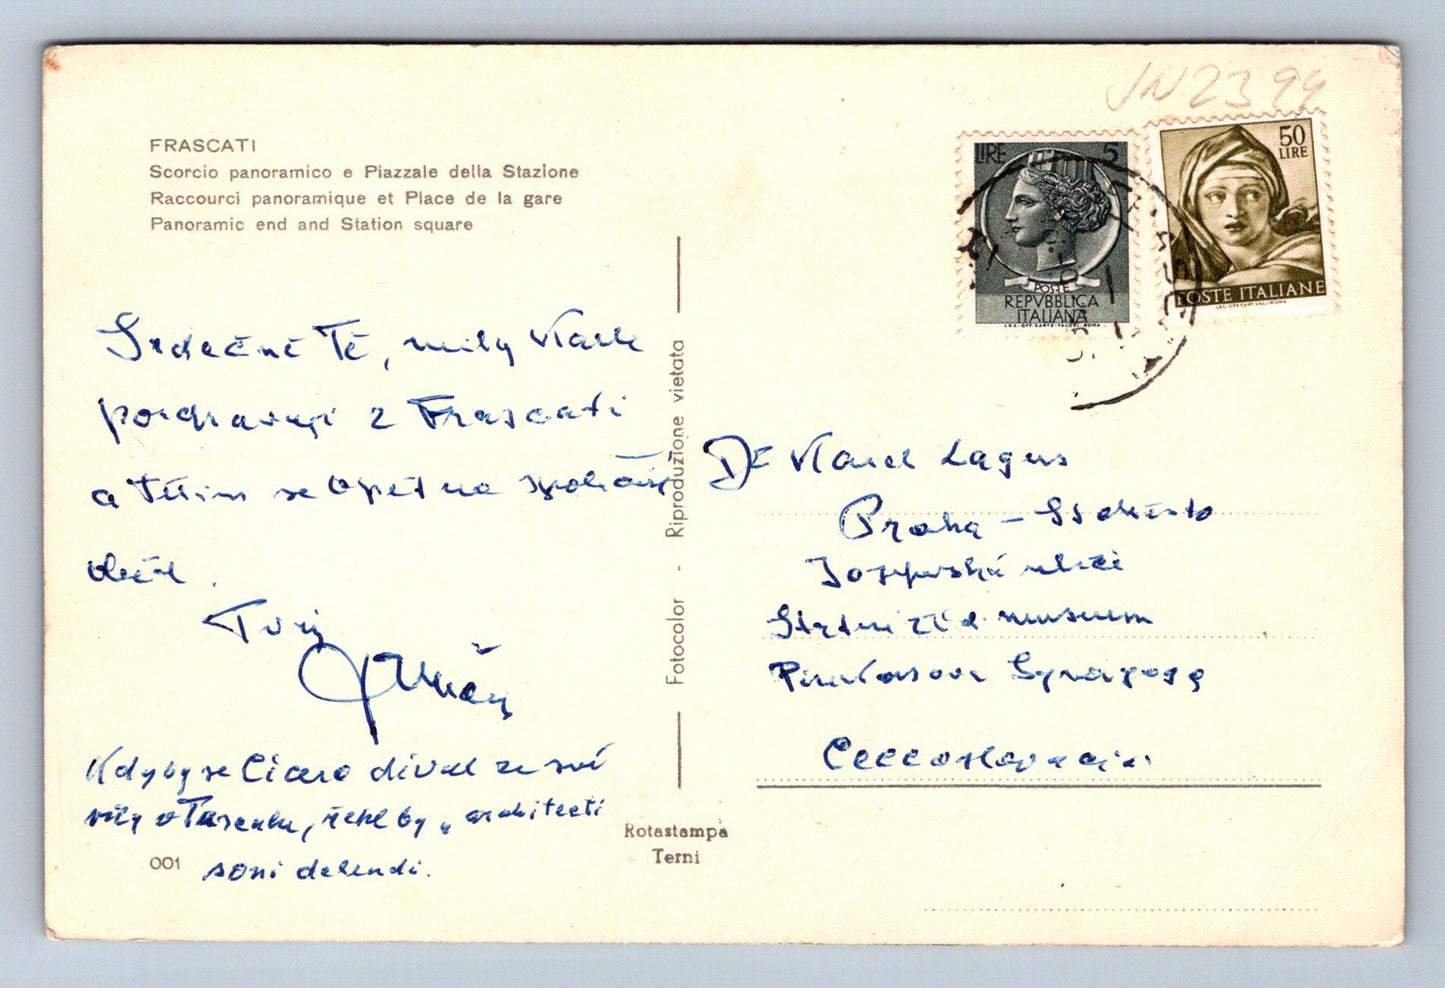 JN2399
FRASCATI
Scorcio panoramico e Piazzale della Stazione
Raccourci panoramique et Place de la gare
Panoramic end and Station square
LIRE 5
POSTE
REPVBBLICA
ITALIANA
I.P.S.-OFF.CARTE-VALORI-ROMA
50
LIRE
POSTE ITALIANE
Srdečně Tě, milý Karle
pozdravuji z Frascati
a těším se opět na společný
oběd.
Tvůj
Kdyby se Cicero díval ze své
vily v Tusculu, řekl by „architecti
soni delendi.
Dr Karel Lagus
Praha - St. Město
Josefovská ulice
Státní žid. museum
Pinkasova Synagoga
Cecoslovacchia
Fotocolor - Riproduzione vietata
Rotastampa
Terni
001